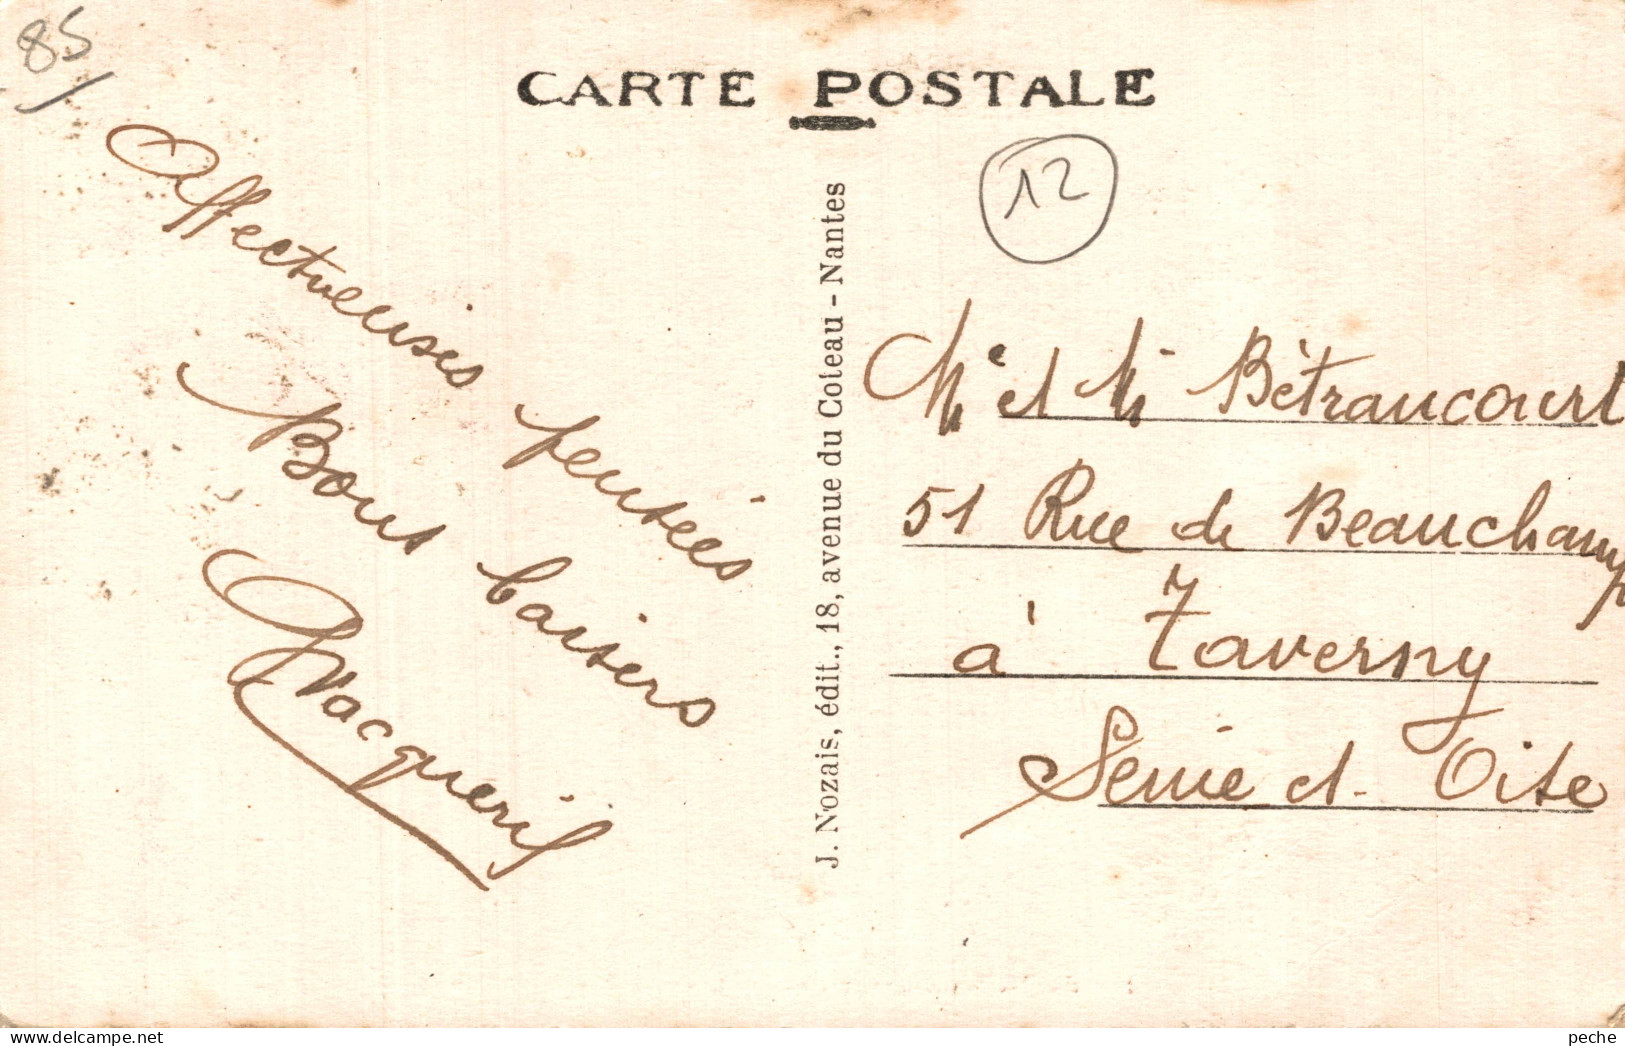 85
CARTE POSTALE
12
Affectueuses pensées
Bons baisers
J. Nozais, édit., 18, avenue du Coteau - Nantes
Mr et M Bétrancourt
51 Rue de Beauchamp
à Taverny
Seine et Oise
peche